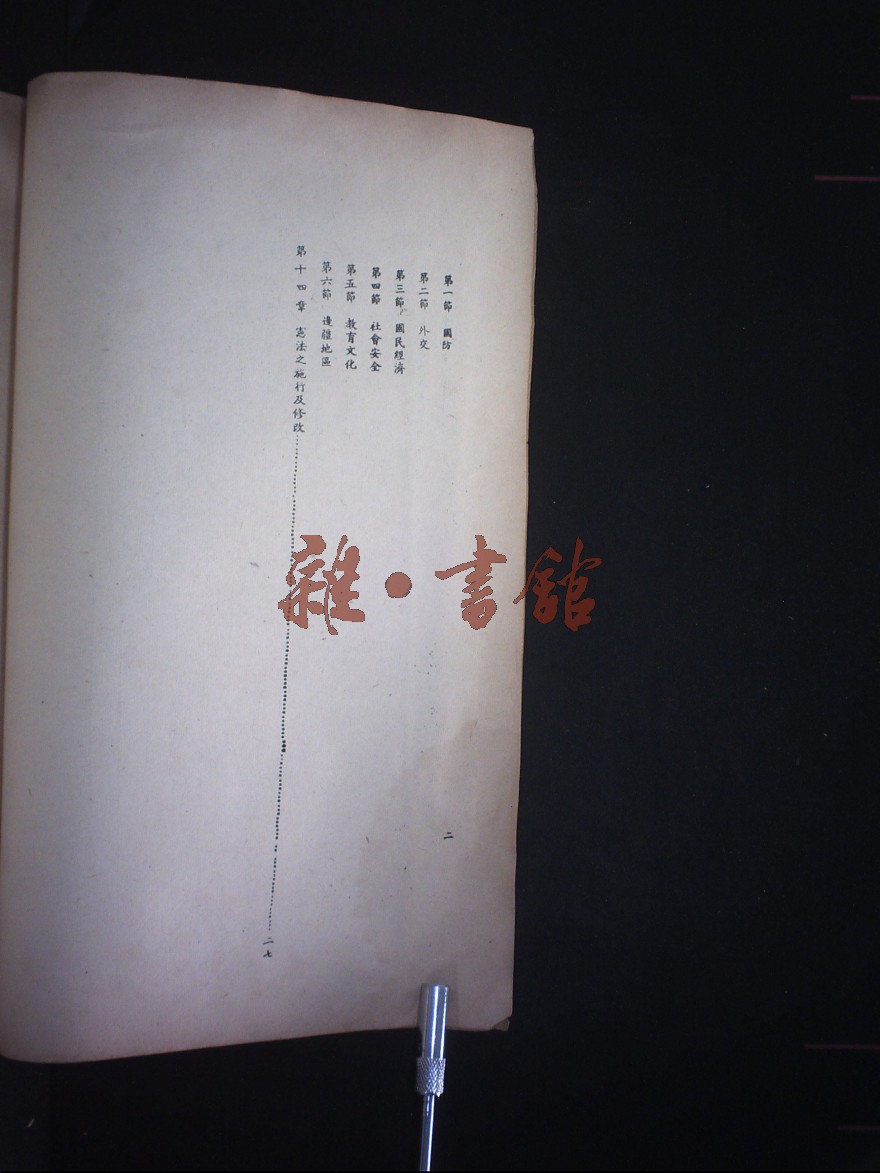 第一節 國防
第二節 外交
第三節 國民經濟
第四節 社會安全
第五節 教育文化
第六節 邊疆地區
第十四章 憲法之施行及修改……二七
二
雜·書館